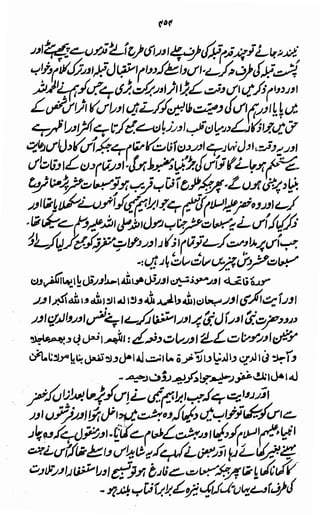 ۴۵۴
نیند نہ جائے تو چند قدم قبلہ کی طرف چلے اور اسی طرح الٹے قدموں سے پیچھے ہٹے اور
پشت قبلہ کی طرف نہ کرے۔ اس واسطے کہ دوام استقبال قبلہ اور ترک کلام و خواب
اور دوام ذکر میں اس وقت کے بڑا اثر اور برکت بڑی ہے جس کو ہم نے الحمد للہ
میں پایا اور ہم اس کی وصیت طالبین کو کرتے ہیں اور اس کا اثر اس شخص کے
حق میں جو اذکار کے درمیان قلب اور زبان سے جمع کرتا ہے اکثر اور اظہر ہے
اور یہ وقت، اول نہار ہے اور دن آفات کا مقام ہے جبکہ اس کا اول اس رعایت
سے مستحکم ہو جائے گا تو اس کی جڑ بنیاد مضبوط ہوگی۔ اور تمام دن کے اوقات اس
بنیاد پر مبنی ہوں گے۔ پھر جبکہ طلوع آفتاب قریب ہو تو مسبعات عشر پڑھنا شروع
کرے اور وہ خضر علیہ السلام کی تعلیم سے ہے جو ابراہیم تیمی کو انھوں نے سکھلایا تھا اور
ذکر کیا کہ اس نے مسبعات عشر جناب رسول اللہ صلی اللہ علیہ وسلم سے سیکھا تھا۔
جب اس پر مداومت کرے تو تمام اذکار اور دعوات متفرقہ کو جمع کر لیا کرے اور
مسبعات عشر دس چیزیں سات سات بار ہیں :۔
سورۃ فاتحہ اور معوذتین اور قل ھو اللہ احد اور قل یا ایھا الکفرون
اور آیت الکرسی اور سبحان اللہ والحمد للہ ولا الہ الا اللہ واللہ اکبر اور
درود حضرت نبی اور آل نبی پر اور استغفار کرے اپنے نفس اور والدین اور
مومنین اور مومنات کے لئے اور سات دفعہ کہے : اللھم افعل بی و بھم عاجلا
و آجلا فی الدین والدنیا والآخرۃ ما انت لہ اھل ولا تفعل بنا یا مولانا ما نحن
لہ اھل انک غفور حلیم جواد کریم رؤف رحیم۔
اور روایت ہے کہ جب ابراہیم تیمی نے اس کو پڑھا بعد ازاں کہ خضر
سے اس کو سیکھا تو خواب میں دیکھا کہ وہ بہشت میں داخل ہوا اور فرشتوں اور
انبیاء علیہم السلام کو دیکھا اور بہشت کے طعام سے کھایا۔ اور منقول ہے کہ وہ چار
مہینے بغیر کھائے رہا اور بعض نے کہا ہے کہ یہ شاید اس واسطے تھا کہ اس نے جنت
کا کھانا کھایا تھا پھر جبکہ مسبعات سے فارغ ہو تو تسبیح اور استغفار اور تلاوت
کی طرف آوے یہاں تک کہ ایک نیزہ کے برابر آفتاب بلند ہو۔